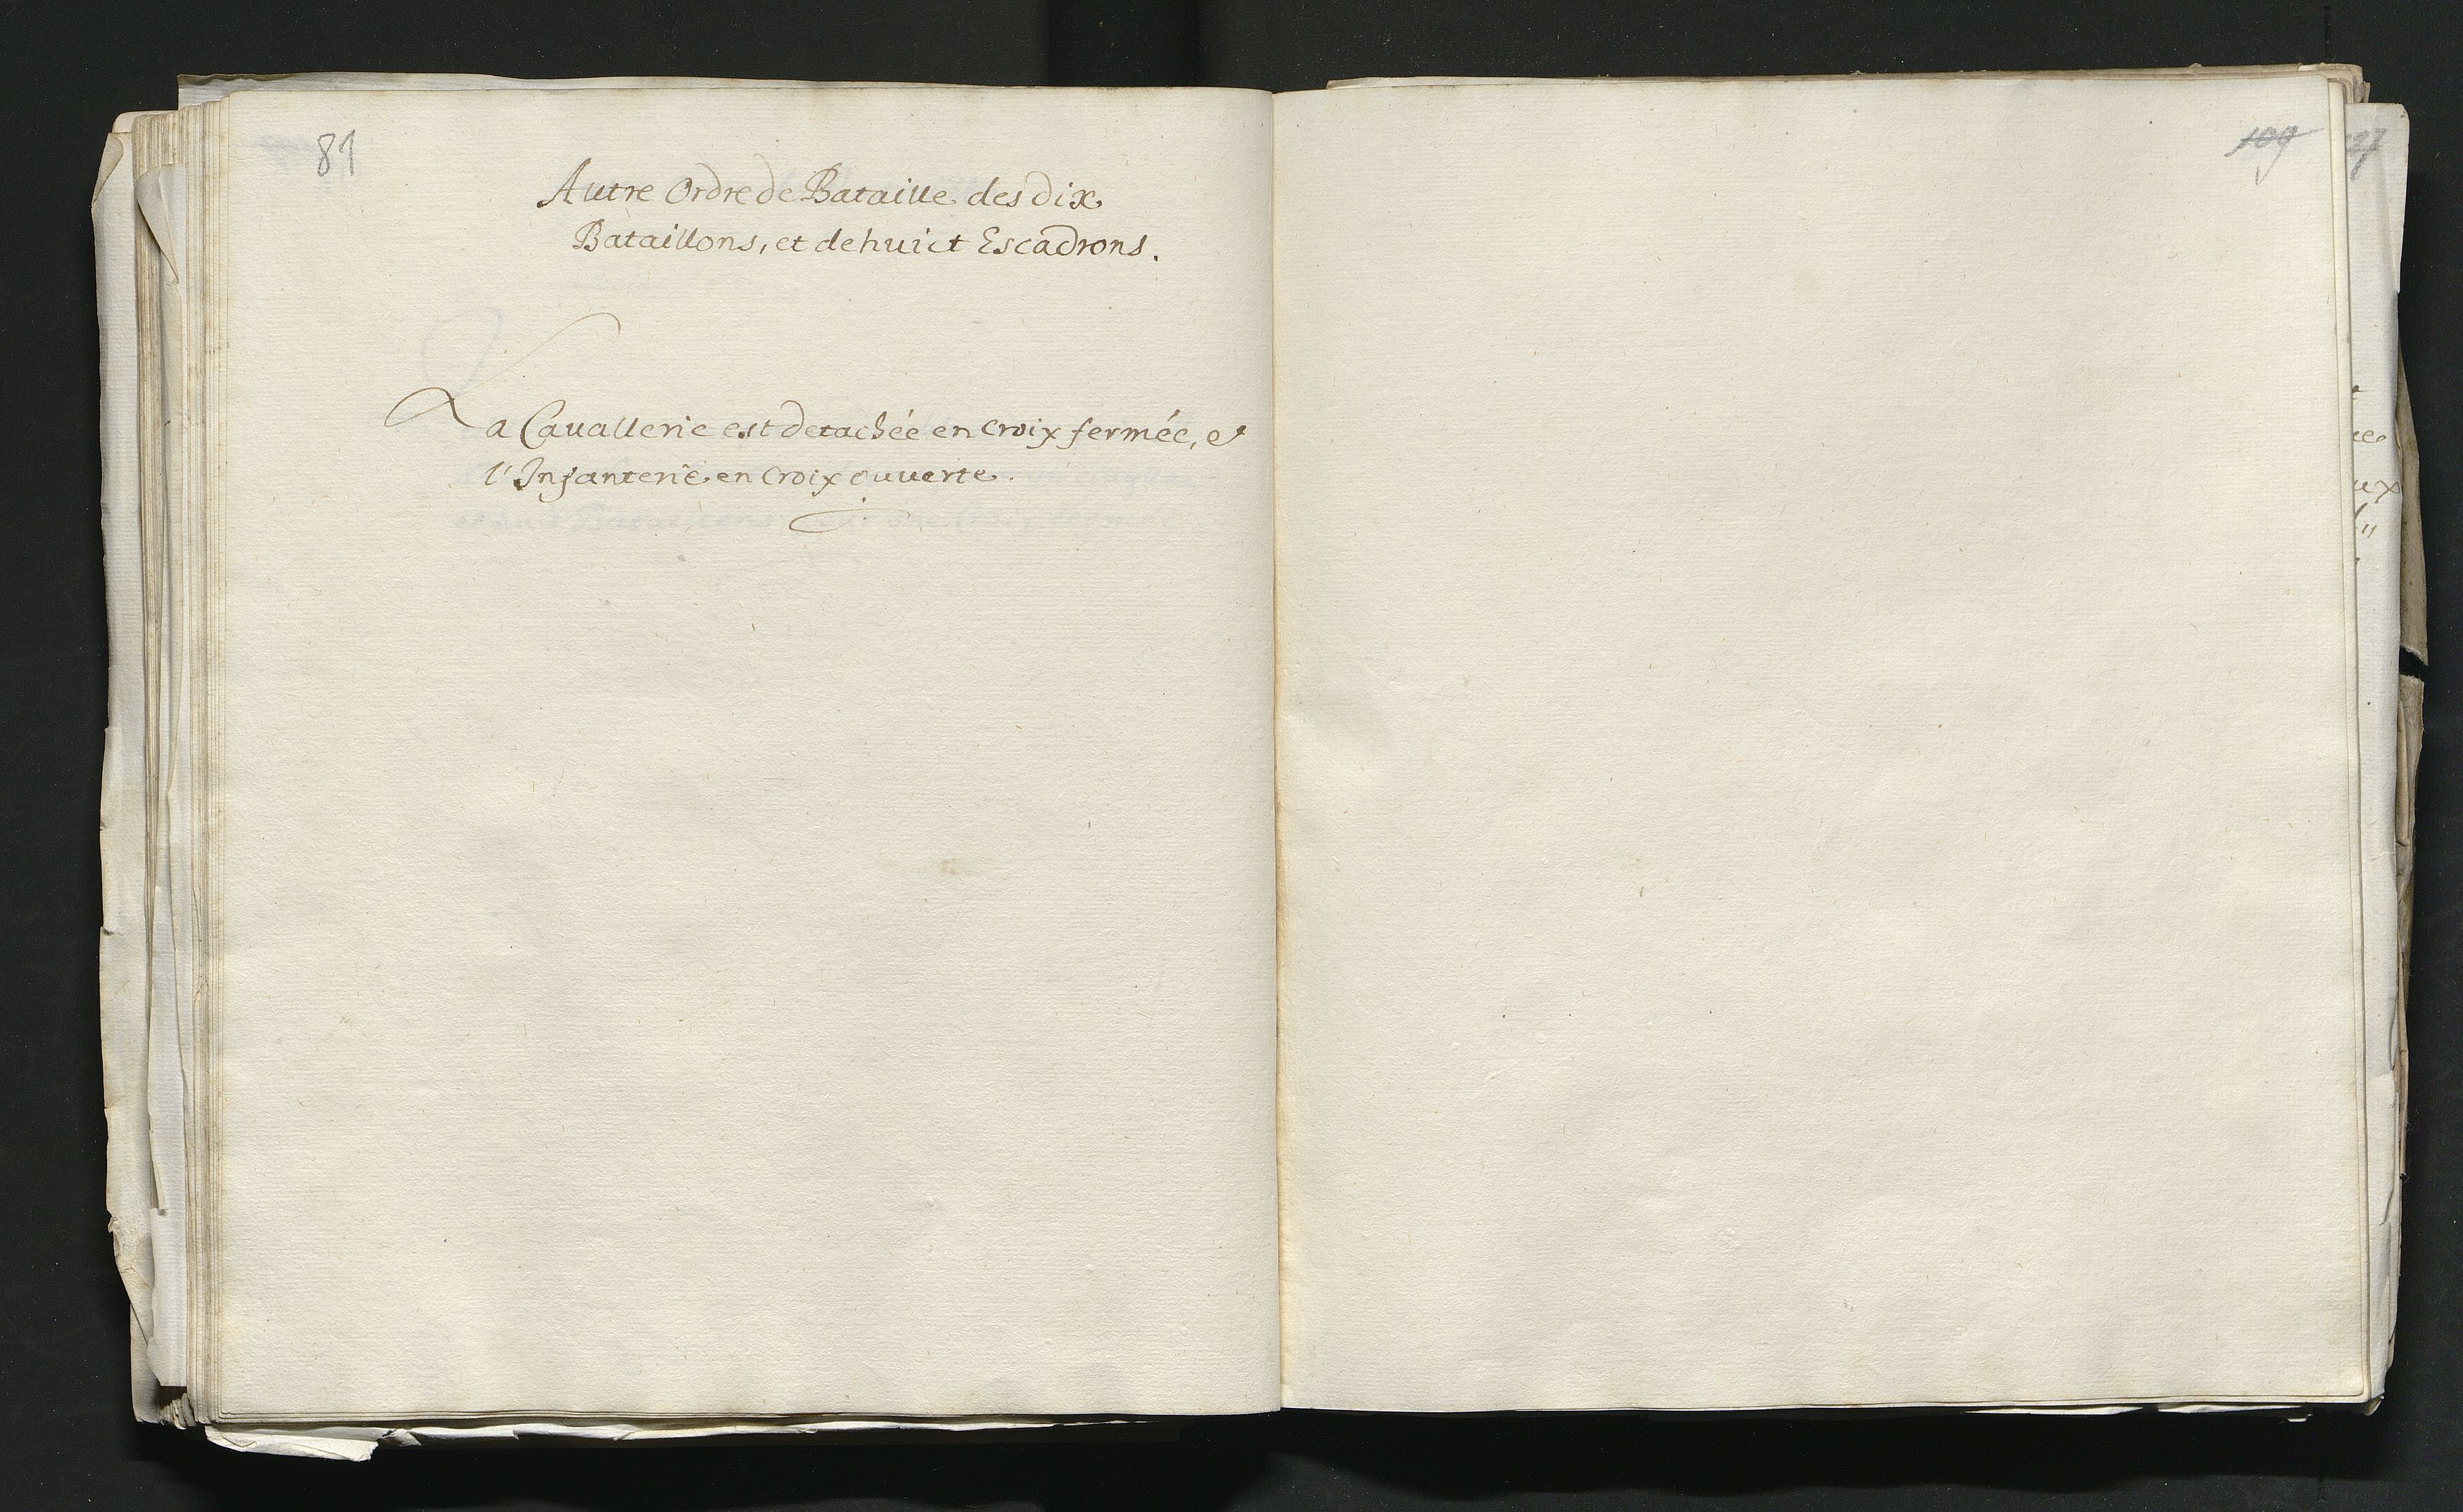 81
Autre Ordre de Bataille des dix
Bataillons, et de huict Escadrons.
La Cavallerie est detachée en croix fermée, et
l'Infanterie en croix ouverte.
109